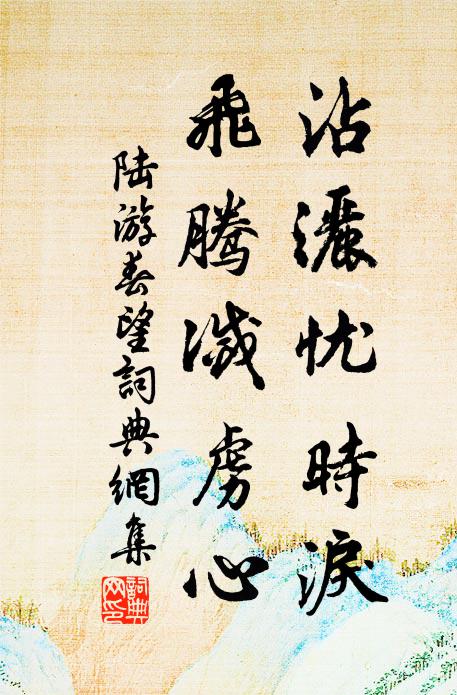 沾灑忧時淚
飛騰滅虜心
陆游春望詞典網集
詞典網印